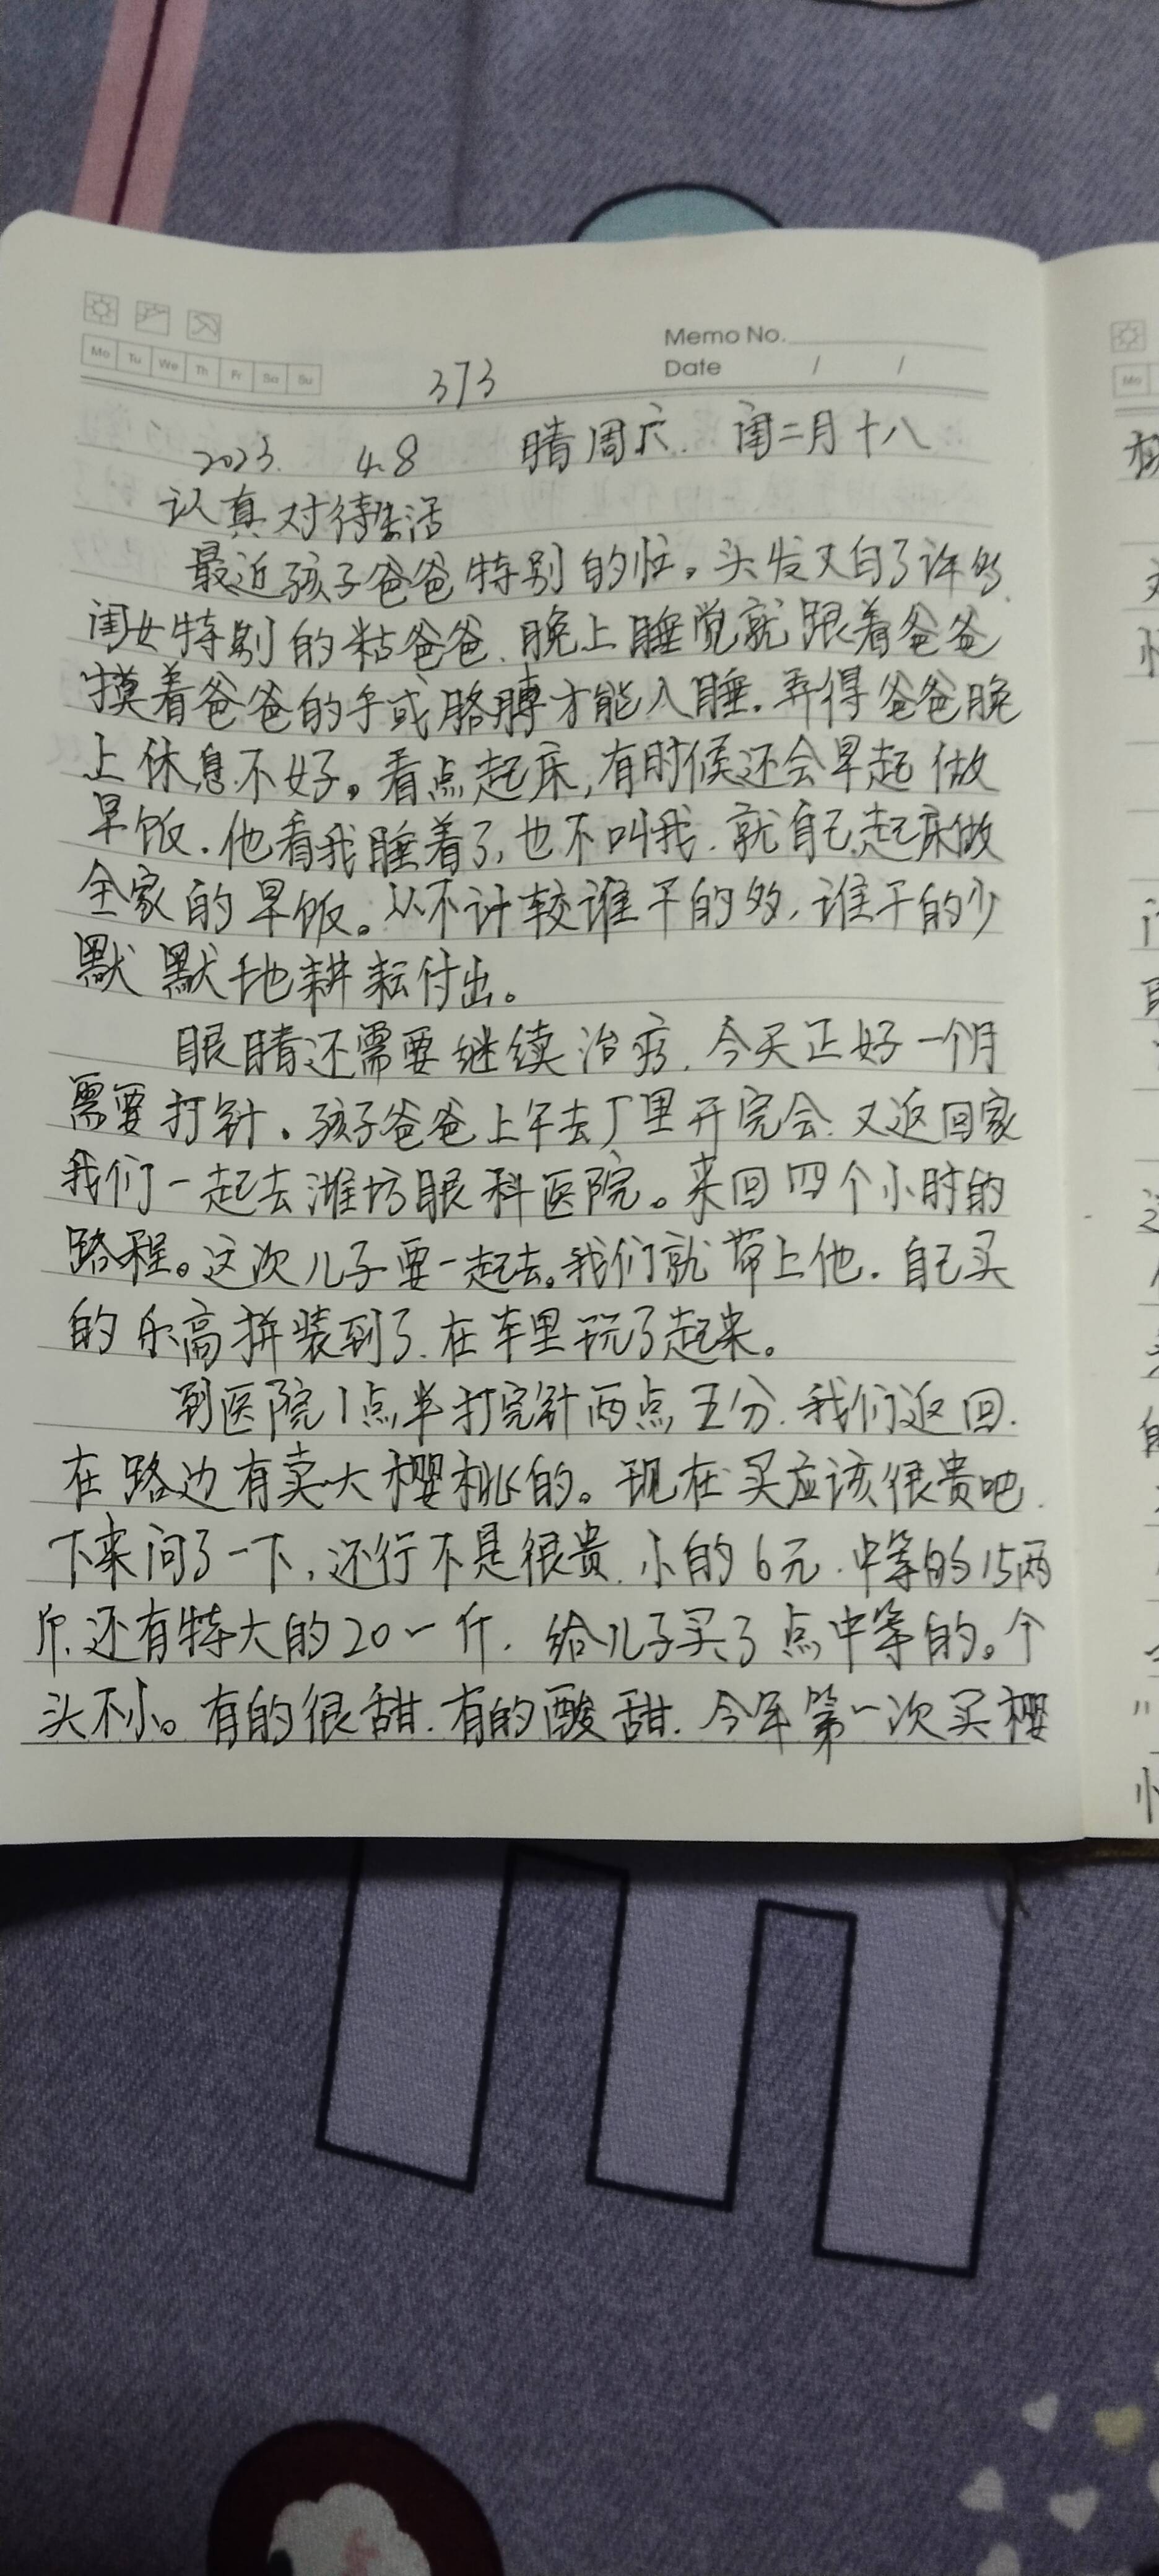 Memo No.
Mo Tu We Th Fr Sa Su
Date / /
373
2023. 4.8 晴 周六. 闰二月十八
认真对待生活
最近孩子爸爸特别的忙。头发又白了许多.
闺女特别的粘爸爸.晚上睡觉就跟着爸爸
摸着爸爸的手或胳膊才能入睡.弄得爸爸晚
上休息不好。看点起床,有时候还会早起做
早饭.他看我睡着了,也不叫我.就自己起床做
全家的早饭。从不计较谁干的多,谁干的少
默默地耕耘付出。
眼睛还需要继续治疗.今天正好一个月
需要打针.孩子爸爸上午去厂里开完会.又返回家
我们一起去潍坊眼科医院。来回四个小时的
路程。这次儿子要一起去。我们就带上他.自己买
的乐高拼装到了.在车里玩了起来。
到医院1点半打完针两点五分.我们返回.
在路边有卖大樱桃的。现在买应该很贵吧.
下来问了一下,还行不是很贵.小的6元.中等的15两
斤.还有特大的20一斤.给儿子买了点中等的。个
头不小。有的很甜.有的酸甜.今年第一次买樱
Mo